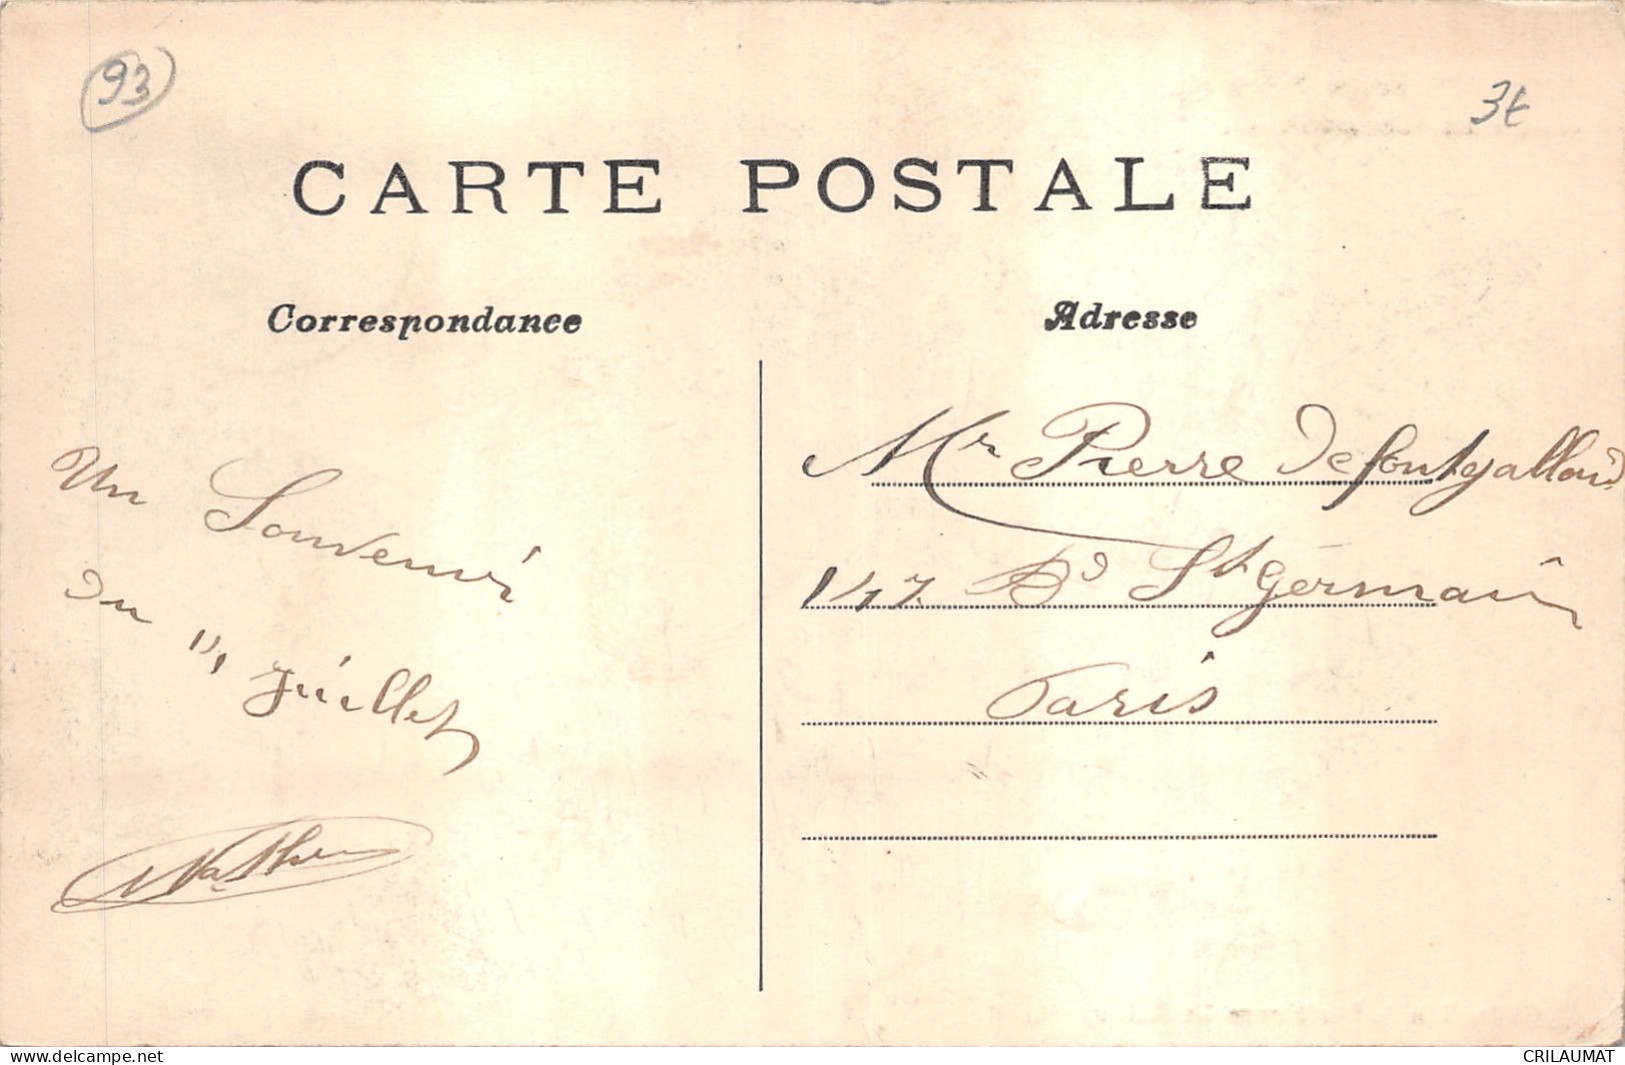 93
3€
CARTE POSTALE
Correspondance
Adresse
Un Souvenir
du 14 Juillet
Mr Pierre Defontgalland
147 Bd St Germain
Paris
delcampe.net
CRILAUMAT